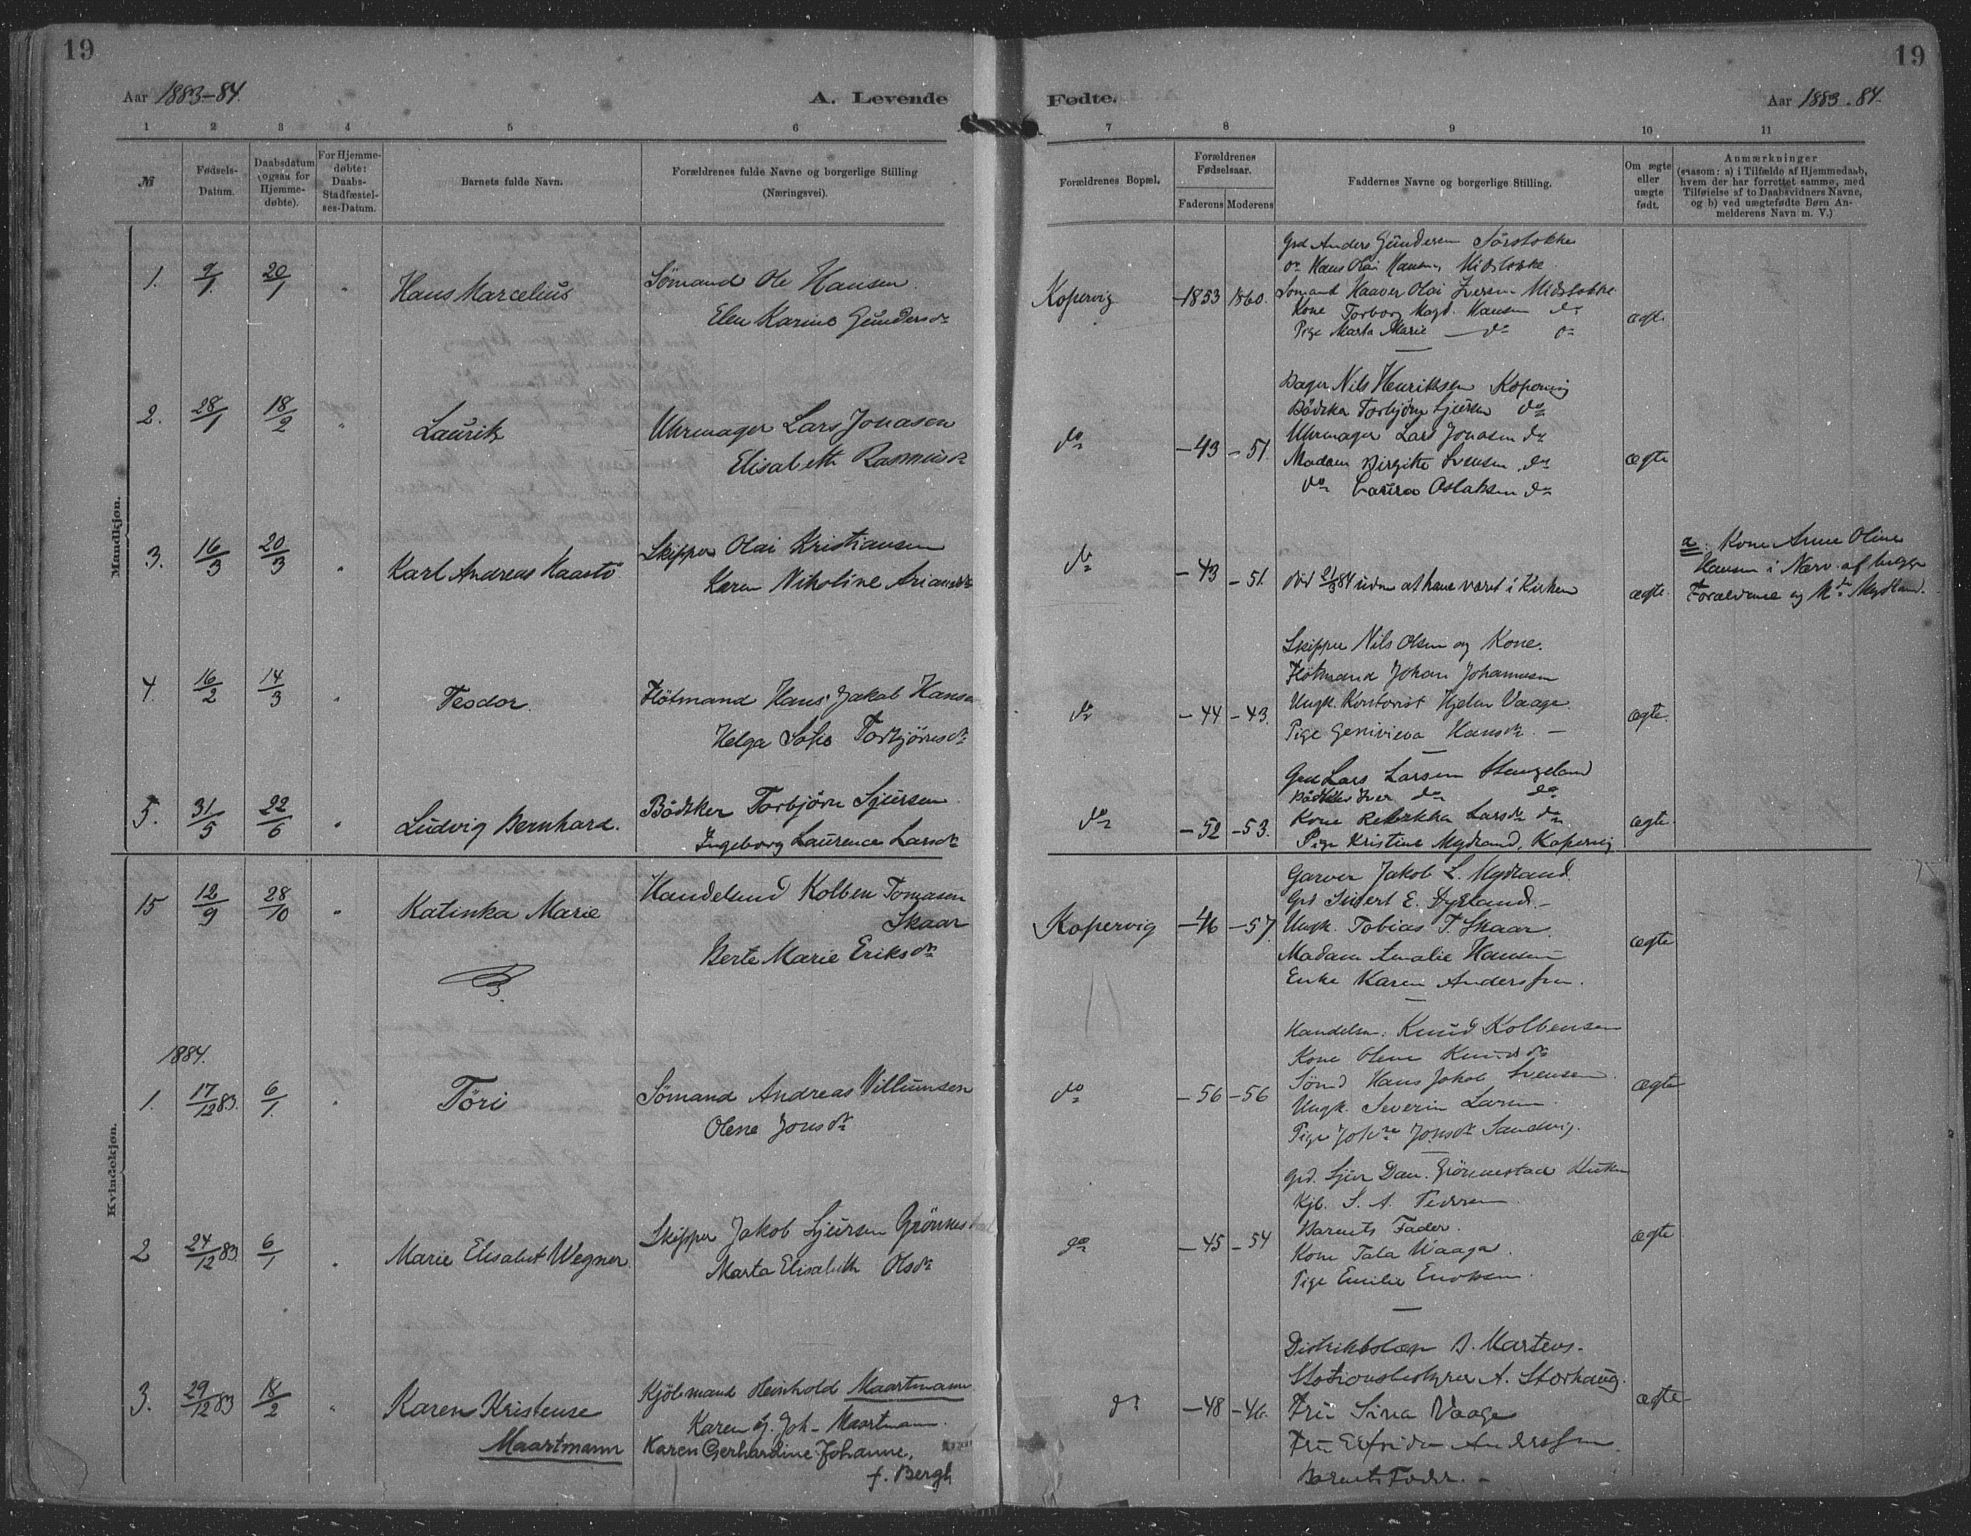 19
19
Aar 1883-84.
A. Levende
Fødte.
Aar 1883-84.
1 2 3 4 5 6
7 8 9 10 11
№
Fødsels-
Datum.
Daabsdatum
(ogsaa for
Hjemme-
døbte).
For Hjemme-
døbte:
Daabs-
Stadfæstel-
ses-Datum.
Barnets fulde Navn.
Forældrenes fulde Navne og borgerlige Stilling
(Næringsvei).
Forældrenes Bopæl.
Forældrenes
Fødselsaar.
Faderens Moderens
Faddernes Navne og borgerlige Stilling.
Om ægte
eller
uægte
født.
Anmærkninger
(saasom: a) i Tilfælde af Hjemmedaab,
hvem der har forrettet samme, med
Tilføielse af to Daabsvidners Navne,
og b) ved uægtefødte Børn An-
melderens Navn m. V.)
Mandkjøn.
1. 9/1 20/1 " Hans Marcelius
Sømand Ole Hansen
Elen Karine Gundersdr
Kopervig -1853 1860.
Grd Anders Gundersen Sörstokke
do Hans Olai Hansen, Midstokke
Sømand Haaver Olai Iversen Midstokke
Kone Torborg Magd. Hansen do
Pige Marta Marie do do
ægte
2. 28/1 18/2 " Lauritz
Uhrmager Lars Jonasen
Elisabeth Rasmusdr
do -43 -51.
Bager Nils Henriksen Kopervig
Bödker Torbjörn Sjursen do
Uhrmager Lars Jonasen do
Madam Birgitte Svensen do
do Laura Oslaksen do
ægte
3. 16/3 20/3 " Karl Andreas Kaastö
Skipper Olai Kristiansen
Karen Nikoline Ariansdr
do -43 -51.
Död 21/3 84 uden at have været i Kirken
ægte
a. Kone Anne Oline
Hansen i Nærv. af begge
Forældrene og Md. Mydland.
4 16/2 14/3 " Teodor.
Flötmand Hans Jakob Hansen
Helga Sofie Torbjörnsdr
do -44 -43.
Skipper Nils Olsen og Kone.
Flötmand Johan Johannesen
Ungk. Kontorist Hjelm Vaage
Pige Genivieva Hansdr. -
ægte.
5. 31/5 22/6 " Ludvig Bernhard.
Bödker Torbjörn Sjursen
Ingeborg Laurence Larsdr
do -52 -53.
Grd Lars Larsen Stangeland
Bödker Iver do do
Kone Rebekka Larsdr do
Pige Kristine Mydland, Kopervig
ægte
Kvindekjøn.
15 12/9 28/10 " Katinka Marie
Handelsmd Kolben Tomasen
Skaar
Berte Marie Eriksdr
Kopervig -46 -57.
Garver Jakob L. Mydland
Grd Sivert E. Dyrland -
Ungk. Tobias T. Skaar
Madam Amalie Hansen
Enke Karen Anderssen.
ægte
1884.
1. 17/12 83. 6/1 " Töri
Sømand Andreas Villumsen
Olene Jonsdr
do -56 -56
Handelsm. Knud Kolbensen
Kone Olene Knudsdr
Sømd Hans Jakob Svensen
Ungk. Severin Larsen
Pige Johne Jonsdr Sandvig.
ægte
2 24/12 83. 6/1 " Marie Elisabet Wegner.
Skipper Jakob Sjursen Grönnestad
Marta Elisabeth Olsdr
do -45 -54
Grd. Sjur Dan. Grönnestad
Kjb. S. A. Pedersen
Barnets Fader.
Kone Tala Waage.
Pige Emilie Enoksen.
ægte
3. 29/12 83 18/2 " Karen Kristense
Maartmann
Kjöbmand Heinhold Maartmann
Karen g. Joh- Maartmann.
Karen Gerhardine Johanne,
f. Bergh
do -48 -46.
Distriktslæge B. Martens.
Stationsbestyrer A. Storhaug.
Fru Sina Vaage
Fru Elfrida Anderssen.
Barnets Fader. -
ægte